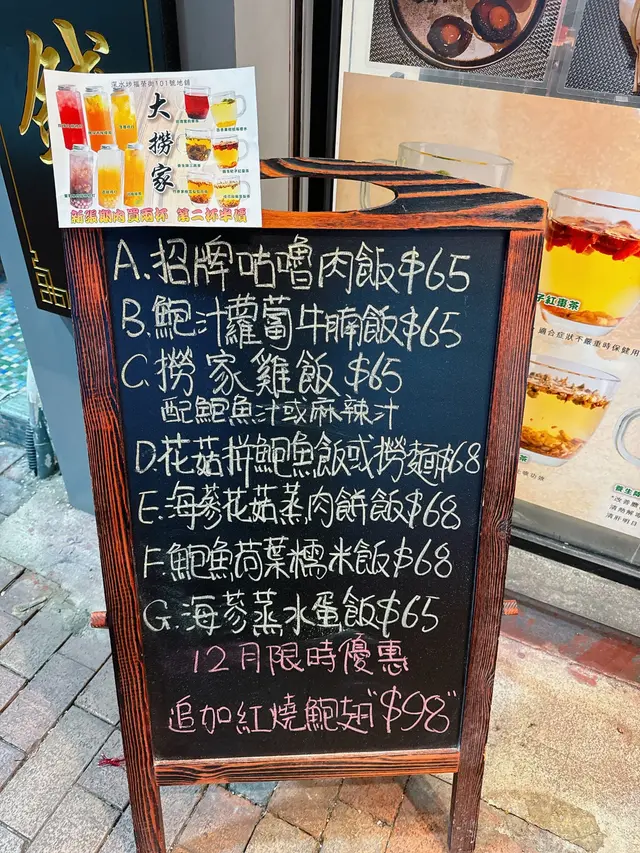 深水埗福榮街101號地舖
大撈家
A.招牌咕嚕肉飯$65
B.鮑汁蘿蔔牛腩飯$65
C.撈家雞飯 $65
配鮑魚汁或麻辣汁
D.花菇拼鮑魚飯或撈麵$68
E.海參花菇蒸肉餅飯$68
F.鮑魚荷葉糯米飯$68
G.海參蒸水蛋飯$65
12月限時優惠
追加紅燒鮑翅"$98"
子紅棗茶
適合症狀不嚴重時保健用